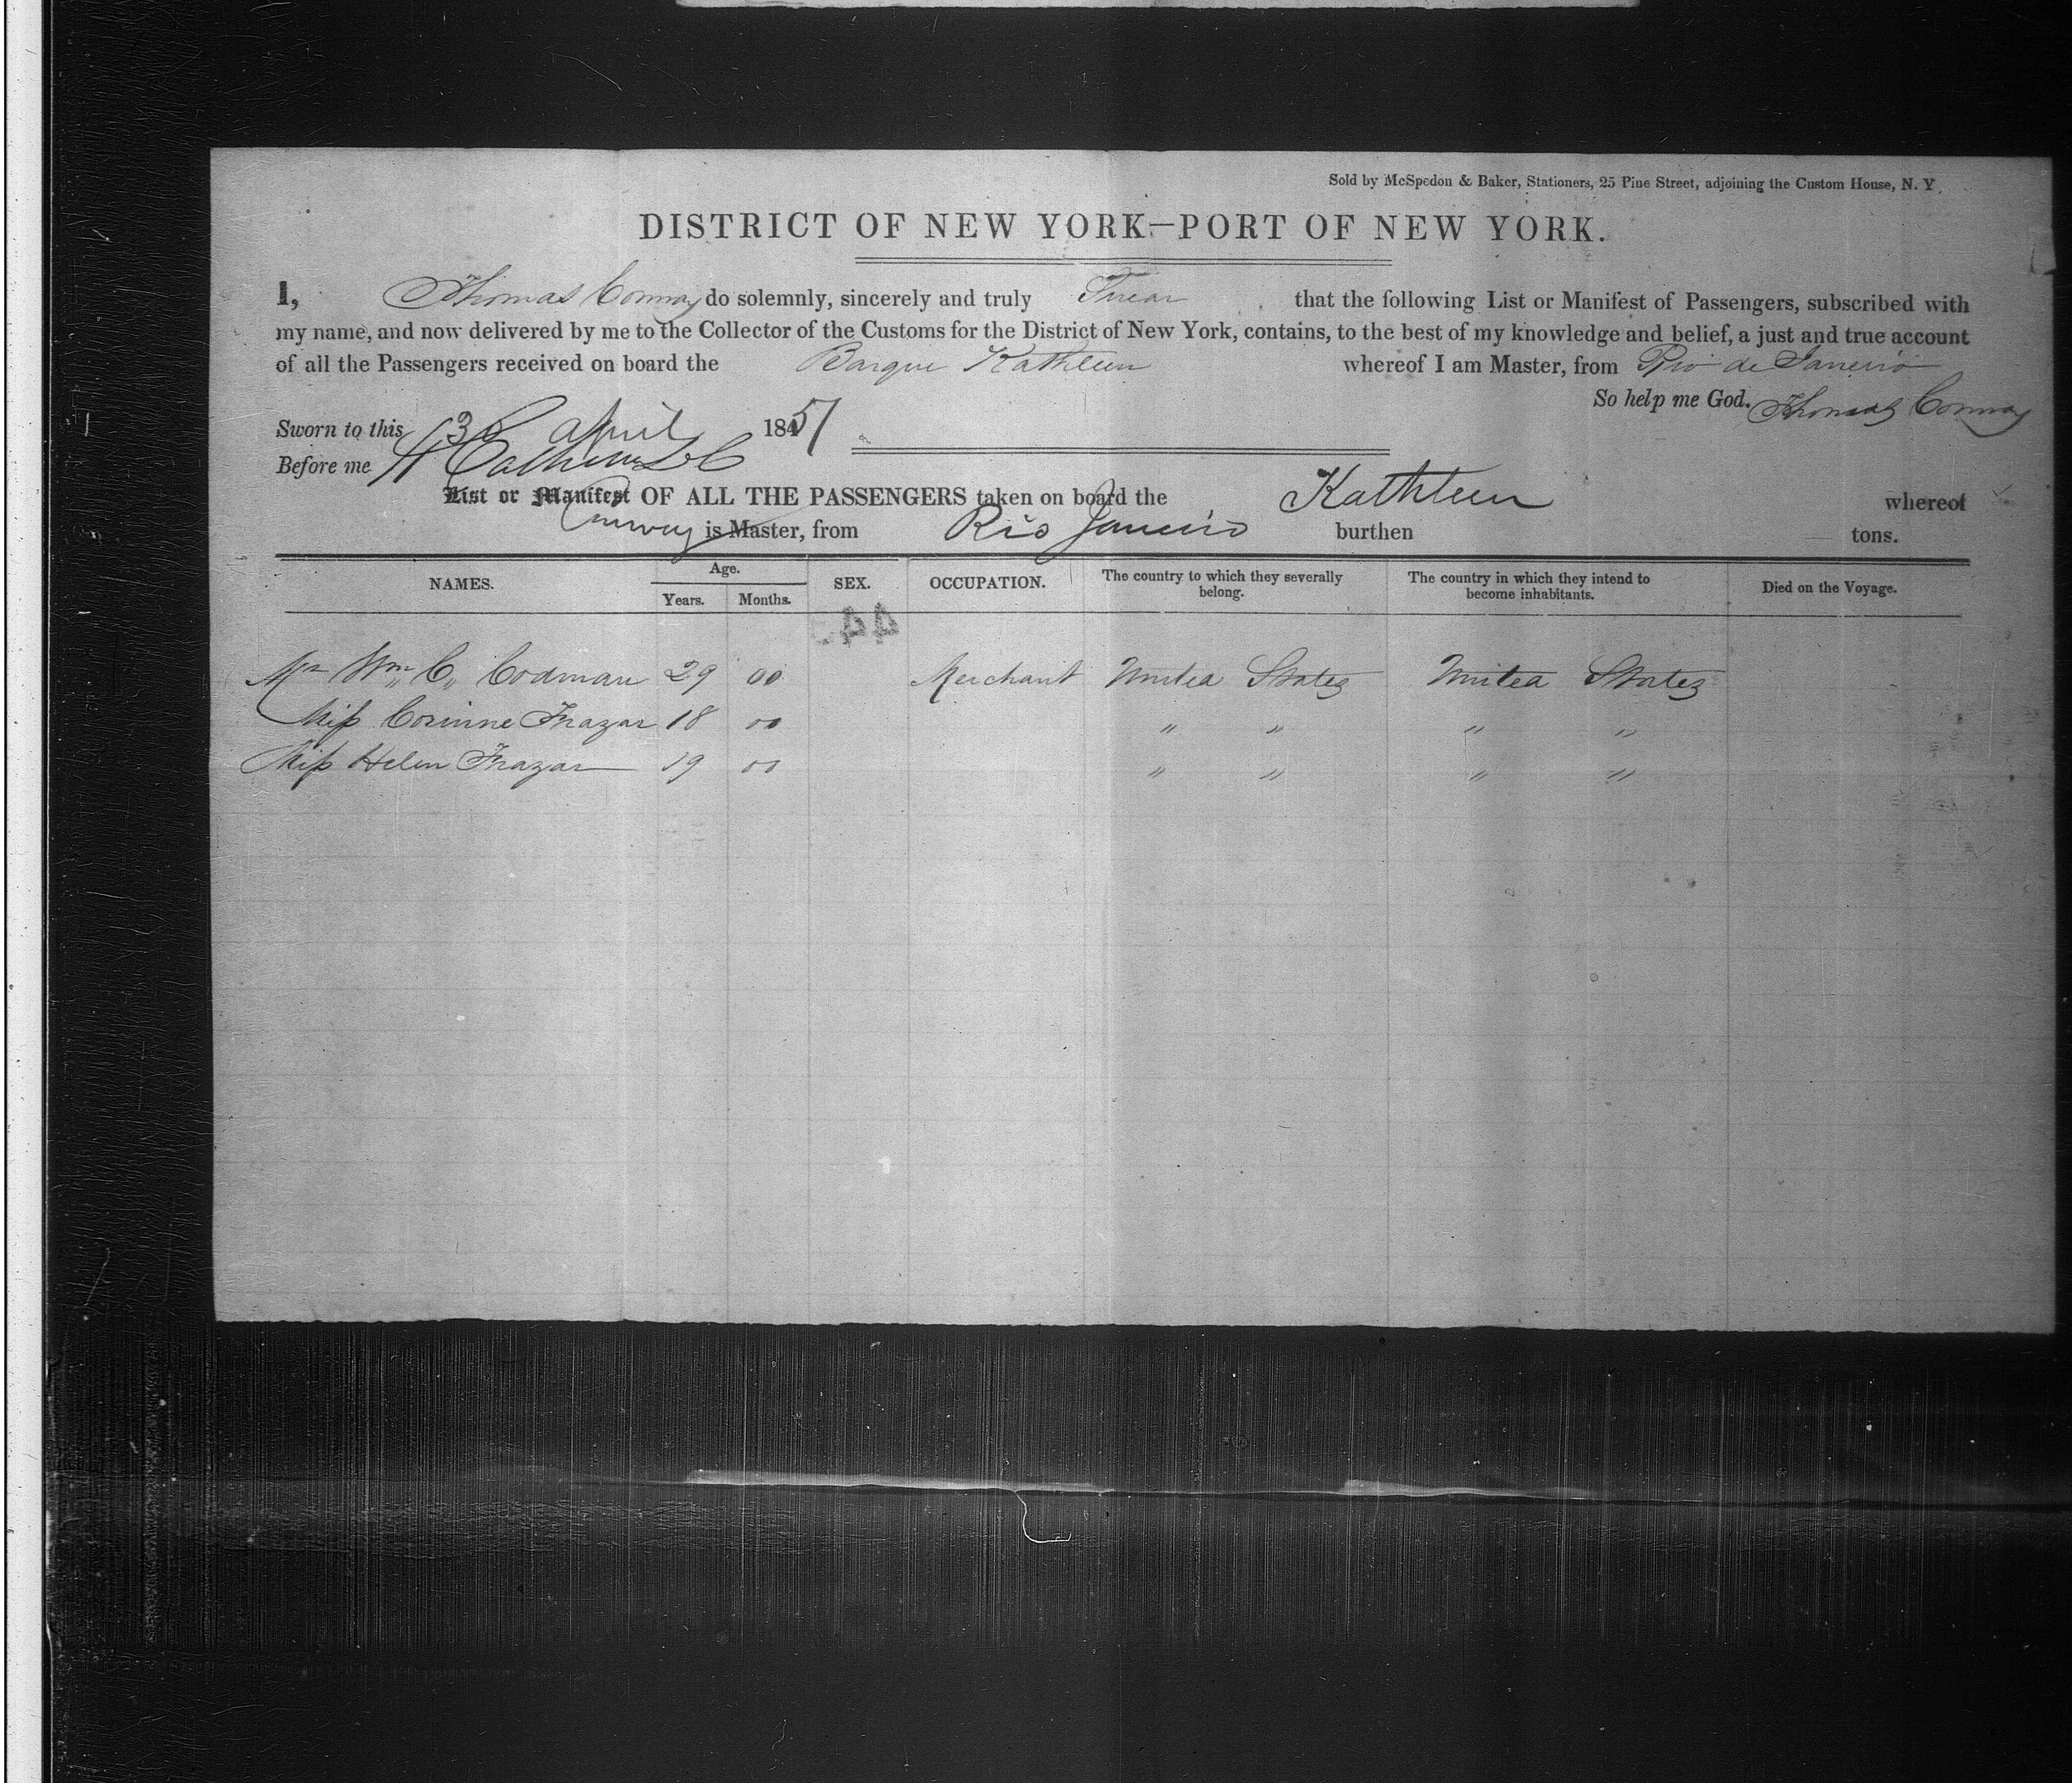 Sold by McSpedon & Baker, Stationers, 25 Pine Street, adjoining the Custom House, N. Y.
DISTRICT OF NEW YORK—PORT OF NEW YORK.
I, Thomas Conway do solemnly, sincerely and truly Swear that the following List or Manifest of Passengers, subscribed with
my name, and now delivered by me to the Collector of the Customs for the District of New York, contains, to the best of my knowledge and belief, a just and true account
of all the Passengers received on board the Barque Kathleen whereof I am Master, from Rio de Janeiro
So help me God. Thomas Conway
Sworn to this 3 april 1851
Before me
List or Manifest OF ALL THE PASSENGERS taken on board the Kathleen whereof
Conway is Master, from Rio Janeiro burthen tons.
NAMES. Age. Years. Months. SEX. OCCUPATION. The country to which they severally belong. The country in which they intend to become inhabitants. Died on the Voyage.
44
Mr Wm,, C,, Codman 29 00 Merchant United States United States
Miss Corinne Frazar 18 00 " " " "
Miss Helen Frazar 19 00 " " " "